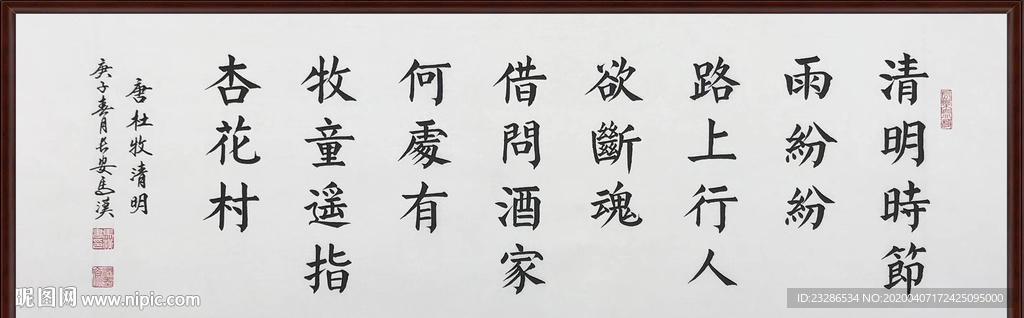 清明時節
雨紛紛
路上行人
欲斷魂
借問酒家
何處有
牧童遥指
杏花村
唐杜牧清明
庚子春月長安馬漢
昵图网 www.nipic.com
ID:23286534 NO:20200407172425095000